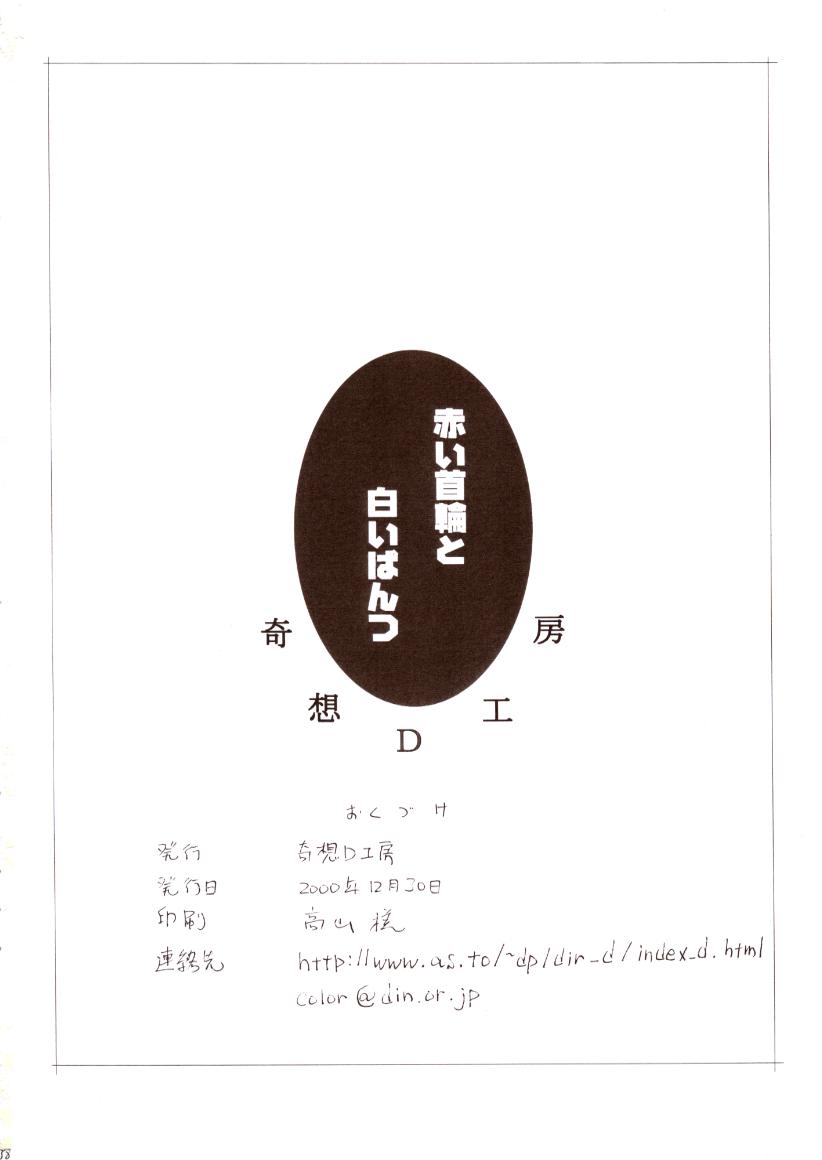 赤い首輪と
白いぱんつ
奇想D工房
おくづけ
発行 奇想D工房
発行日 2000年12月30日
印刷 高山様
連絡先 http://www.as.to/~dp/dir_d/index_d.html
color@din.or.jp